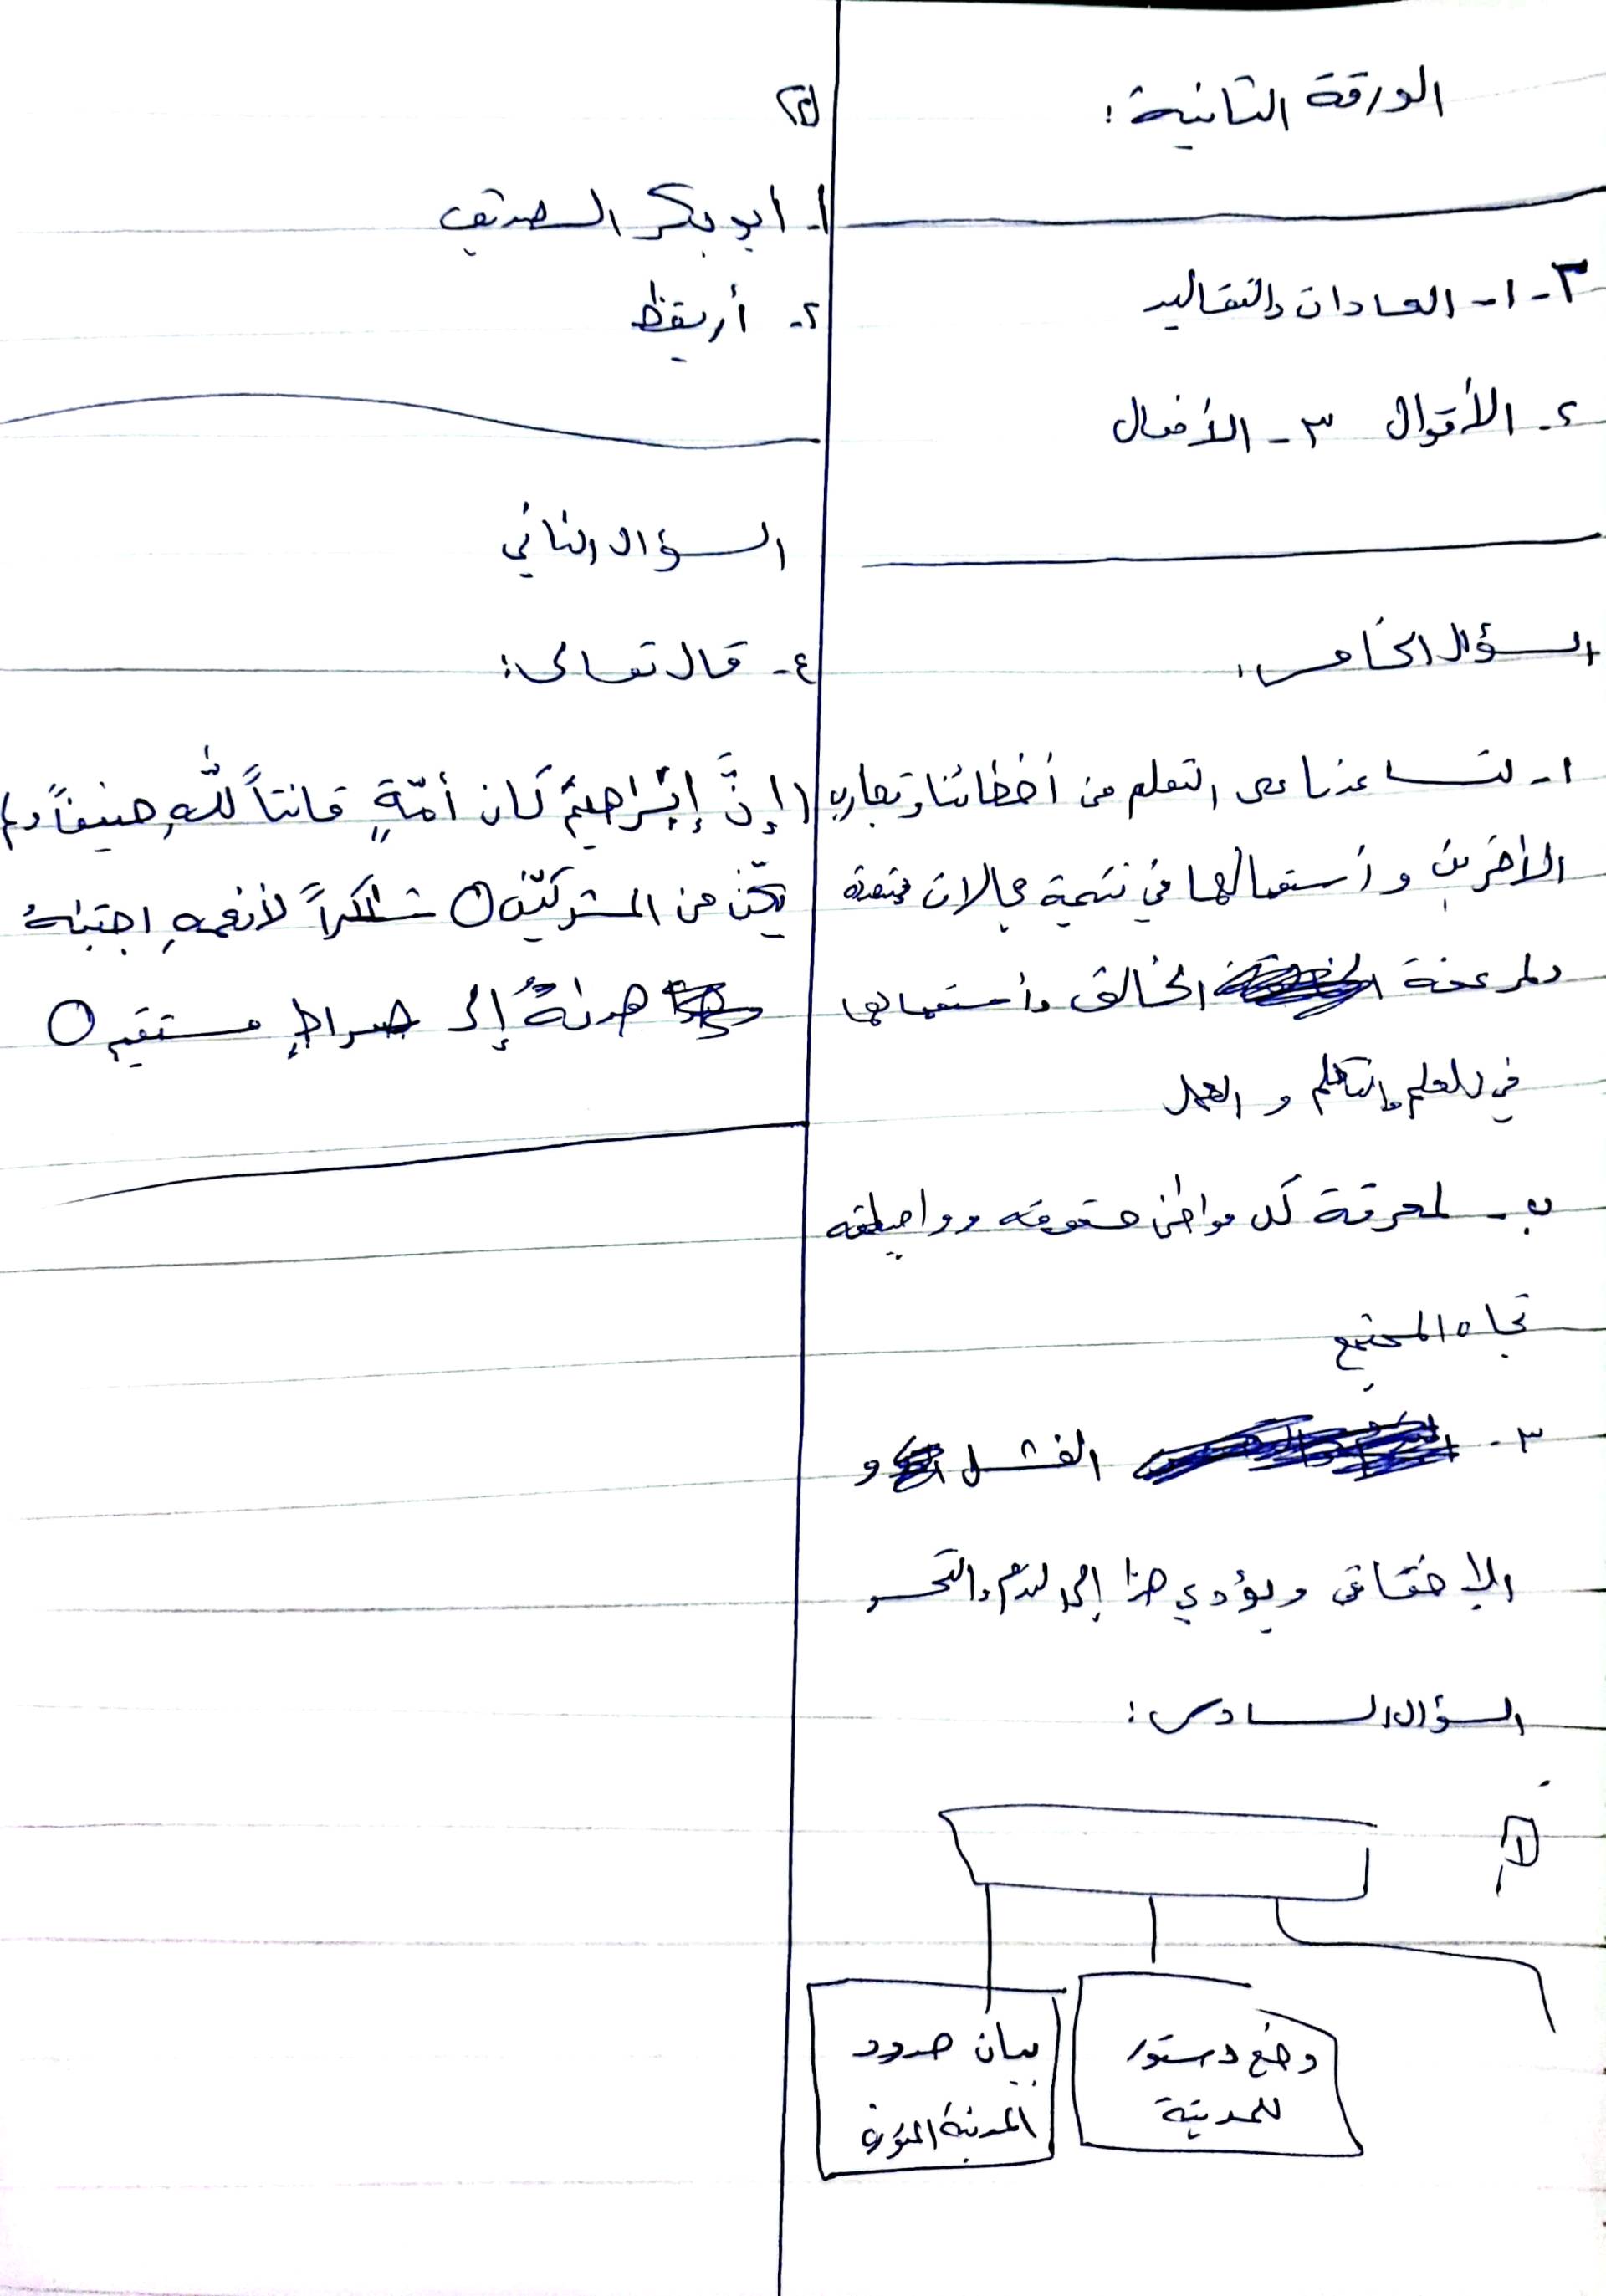 الورقة الثانية:
٣-١- العادات والتقاليد
٢- الأقوال ٣- الأفعال
السؤال الخامس:
١- لتساعدنا على التعلم من أخطائنا وتجارب
الآخرين و أستعمالها في تنمية مجالات متعددة
الخالق وأستعمالها
في للعلم والتعلم و العمل
ب- لمعرفة كل مواطن حقوقه وواجباته
تجاه المجتمع
٣- الفشل و
الإخفاق ويؤدي هذا إلى الندم والتحسر
السؤال السادس:
وضع دستور
للمدينة
بيان حدود
المدينة المنورة
١- ابو بكر الصديق
٢- أريقظ
السؤال الثاني
٤- قال تعالى:
(إنَّ إبْراهيمَ كان أمّةٍ قانتاً للّٰهِ حنيفاً ولم
يكُن من المشركين ○ شاكراً لأنعمهِ اجتبٰهُ
هدٰهُ إلى صراطٍ مستقيم ○